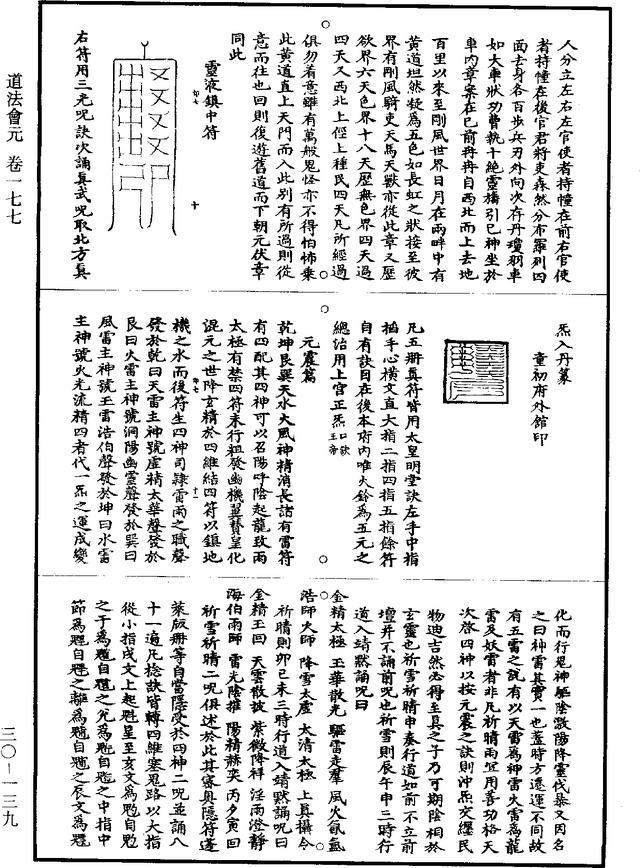 道法會元 卷一七七
三〇—一三九
人分立左右左官使者持幢在前右官使
者持幢在後官君將吏森然分布羅列四
面去身各百步兵刃外向次存丹瓊羽車
如大車狀功曹執十絕靈旛引已神坐於
車內章案在已前冉冉自西北而上去地
百里以來至剛風世界日月在兩畔中有
黃道坦然凝為五色如長虹之狀接至彼
界有剛風騎吏天馬天獸亦從此章又歷
欲界六天色界十八天歷無色界四天過
四天又西北上徑上種民四天凡所經過
俱勿着意雖有萬般鬼怪亦不得怕怖乘
此黃道直上天門而入此別有所過則從
意而往也回則復遊舊道而下朝元伏章
同此
靈液鎮中符
右符用三光呪訣次誦真武呪取北方真
炁入丹篆
童初府外館印
凡五冊真符皆用太皇明堂訣左手中指
掐手心橫文直大指二指四指五指餘符
自有訣目在後本府內唯火鈴為五元之
總治用上宮正炁
元震篇
乾坤艮巽天水火風神精消長諸有雷符
有四配其四神可以召陽呼陰起龍致雨
太極有禁四符未行粗發幽機翼贊皇化
混元之世降玄精於四維結四符以鎮地
機之水而後符生四神司隸雷雨之職聲
發於乾曰天雷主神號虛精太華聲發於
艮曰火雷主神號洞陽幽靈聲發於巽曰
風雷主神號玉雷浩伯聲發於坤曰水雷
主神號火光流精四者代一炁之運成變
化而行鬼神驅陰激陽降靈伐暴又因名
之曰神雷其實一也蓋時方遷運不同故
有五雷之說有以天雷為神雷火雷為龍
雷及妖雷者非凡祈晴雨宜用善功格天
次啓四神以按元震之訣則沖炁交纏民
物迪吉然必得至具之子乃可期陰相於
玄靈也祈雪祈晴申奏行道如前不立前
壇并不誦前呪也祈雪則辰午申三時行
道入靖默誦呪曰
金精太極 玉華散光 驅雷走犀 風火氤氳
浩師火師 降雪太虛 太清太極 上真攝令
祈晴則卯巳未三時行道入靖默誦呪曰
金精玉回 天雲散披 紫微降祥 淫雨澄靜
海伯雨師 雷光陰摧 陽精赫奕 丙夕寅回
祈雪祈晴二呪俱述於此其審奧隱符蓬
萊版冊等自當隱受於四神二呪並誦八
十一遍凡捻訣皆轉四維塞鬼路以大指
從小指戌文上起魁星至亥文為魁自魁